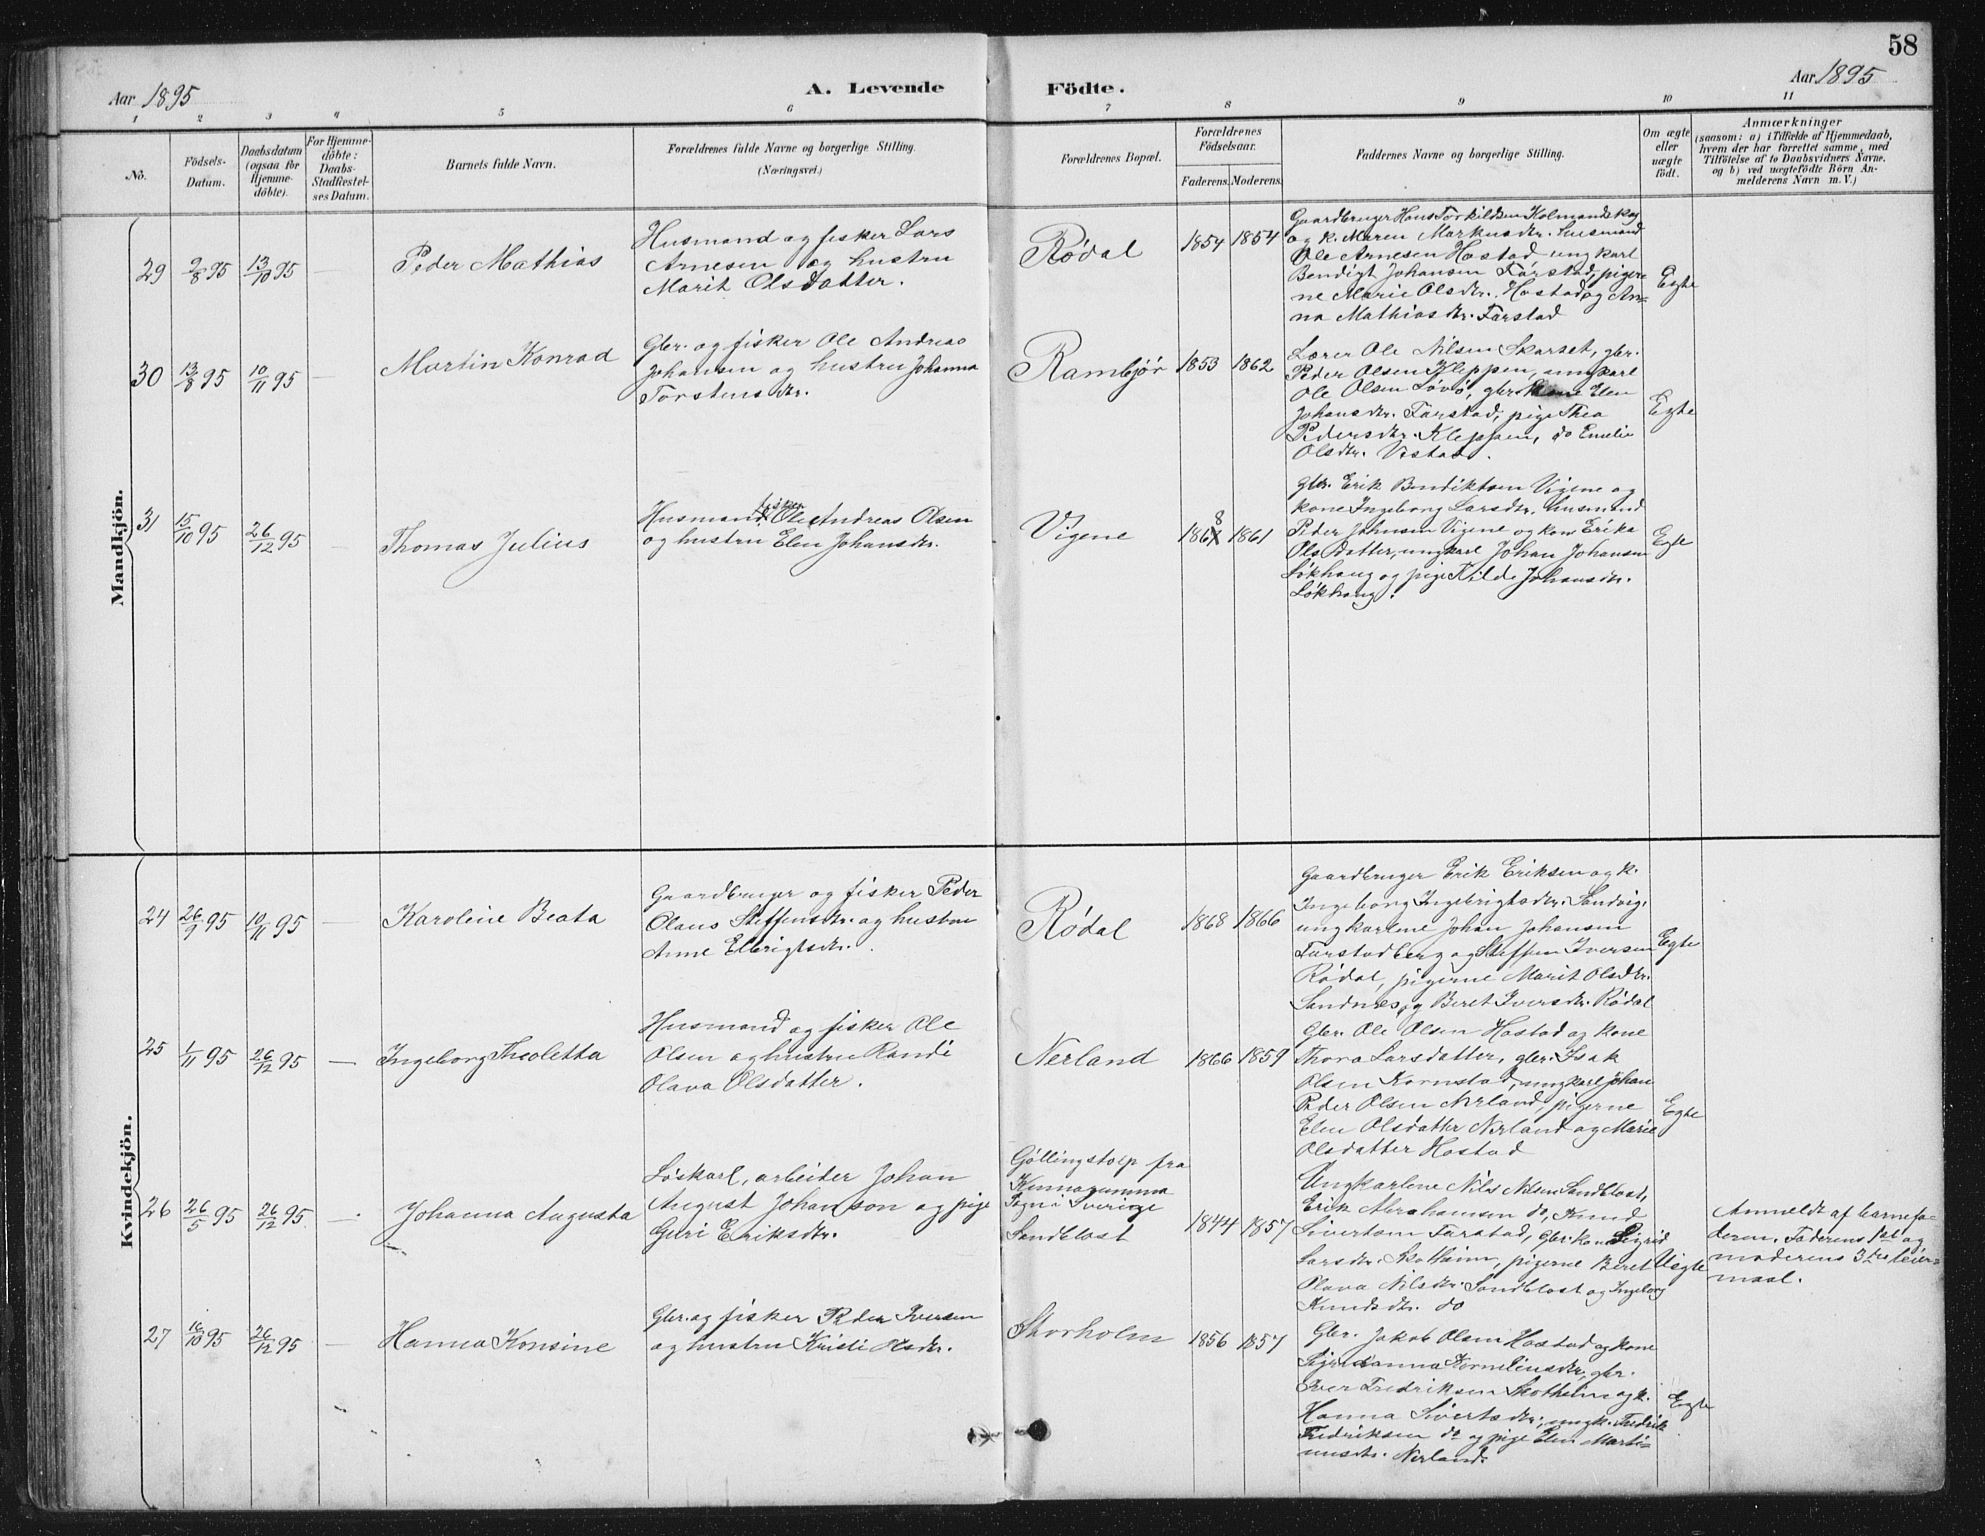 58
Aar 1895
A. Levende
Födte.
Aar 1895
1 2 3 4 5 6 7 8 9 10 11
No.
Födsels-
Datum.
Daabsdatum
(ogsaa for
Hjemme-
döbte).
For Hjemme-
döbte:
Daabs-
Stadfæstel-
ses Datum.
Barnets fulde Navn.
Forældrenes fulde Navne og borgerlige Stilling.
(Næringsvei.)
Forældrenes Bopæl.
Forældrenes
Födselsaar.
Faderens. Moderens.
Faddernes Navne og borgerlige Stilling.
Om ægte
eller
uægte
födt.
Anmærkninger
(saasom: a) i Tilfælde af Hjemmedaab,
hvem der har forrettet samme, med
Tilföielse af to Daabsvidners Navne.
og b) ved uægtefödte Börn An-
melderens Navn m. V.)
Mandkjön.
29
9/8 95
13/10 95
Peder Mathias
Husmand og fisker Lars
Arnesen og hustru
Marit Olsdatter.
Rödal
1854 1854
Gaardbruger Hans Torkildsen Kolmandskog
og k. Maren Markusdtr. husmand
Ole Arnesen Hostad ungkarl
Bendigt Johansen Farstad, piger-
ne Marie Olsdtr. Hostad og An-
na Mathiasdtr. Farstad
Egte
30
13/8 95
10/11 95
Martin Konrad
Gbr. og fisker Ole Andreas
Johansen og hustru Johanna
Torstensdtr.
Rambjör
1853 1862
Lærer Ole Nilsen Skarset, gbr.
Peder Olsen Kleppen, ungkarl
Ole Olsen Lövö, gbr. kone Elen
Johansdtr. Farstad, pige Thea
Pedersdtr. Kleppen, do Emelie
Olsdtr. Vestad.
Egte
31
15/10 95
26/12 95
Thomas Julius
Husmand fisker Ole Andreas Olsen
og hustru Elen Johansdtr.
Vigene
1868 1861
gbr. Erik Bendiktsen Vigene og
kone Ingeborg Larsdtr. husmand
Peder Johnsen Vigene og kone Erika
Olsdatter, ungkarl Johan Johansen
Lökhaug og pige Kilda Johansdtr.
Lökhaug.
Egte
Kvindekjön.
24
26/9 95
10/11 95
Karoline Beata
Gaardbruger og fisker Peder
Olaus Steffensdtr. og hustru
Anne Elbrigtsdtr.
Rödal
1868 1866
Gaardbruger Erik Eriksen og k.
Ingeborg Ingebrigtsdtr. Sandvig,
ungkarlene Johan Johansen
Farstadberg og Steffen Iversen
Rödal, pigerne Marit Olsdtr.
Sandnes og Beret Iversdtr. Rödal
Egte
25
1/11 95
26/12 95
Ingeborg Theoletta
Husmand og fisker Ole
Olsen og hustru Randi
Olava Olsdatter.
Nerland
1866 1859
Gbr. Ole Olsen Hostad og kone
Thora Larsdatter, gbr. Isak
Olsen Kornstad, ungkarl Johan
Peder Olsen Nerland, pigerne
Elen Olsdatter Nerland og Marie
Olsdatter Hostad
Egte
26
26/5 95
26/12 95
Johanna Augusta
Löskarl, arbeider Johan
August Johanson og pige
Guri Eriksdtr.
Göllingstorp fra
Kinnarumma
Sogn i Sverige
Sandblost
1844 1857
Ungkarlene Nils Nilsen Sandblost,
Erik Abrahamsen do, Knud
Sivertsen Farstad, Gbr. kone Sigrid
Larsdtr. Skotheim, pigerne Beret
Olava Nilsdtr. Sandblost og Ingeborg
Knudsdtr. do
Uegte
Anmeldt af barnefa-
deren. Faderens 1ste og
moderens 3die leier-
maal.
27
16/10 95
26/12 95
Hanna Konsine
Gbr. og fisker Peder Iversen
og hustru Kristi Olsdtr.
Storholm
1856 1857
Gbr. Jakob Olsen Hostad og kone
Sigridanna Korneliusdtr, gbr.
Iver Fredriksen Skotheim og k.
Hanna Sivertsdtr., ungk. Fredrik
Fredriksen do og pige Elen Marti-
nusdtr. Nerland.
Egte